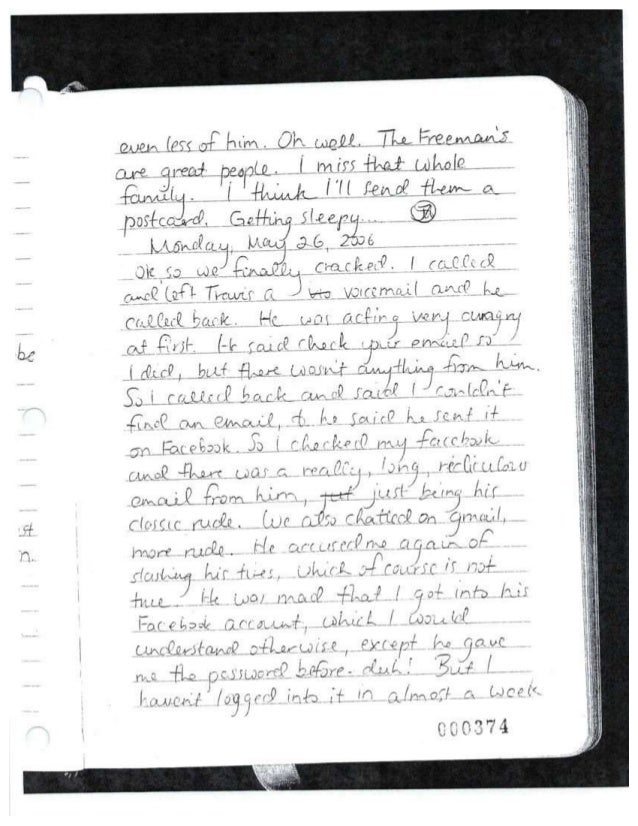 even less of him. Oh well. The Freeman's
are great people. I miss that whole
family. I think I'll send them a
postcard. Getting sleepy...
Monday, May 26, 2006
OK, so we finally cracked. I called
and left Travis a voicemail and he
called back. He was acting very
at first. He said check your email so
I did, but there wasn't anything from him.
So I called back and said I couldn't
find an email, to he said he sent it
on Facebook. So I checked my facebook
and there was a really, long, rediculous
email from him, just being his
classic rude. We also chatted on gmail,
more rude. He accused me again of
slashing his tires, which of course is not
true. He was mad that I got into his
Facebook account, which I would
understand otherwise, except he gave
me the password before. duh! But I
havent logged into it in almost a week
000374
be
st
n.